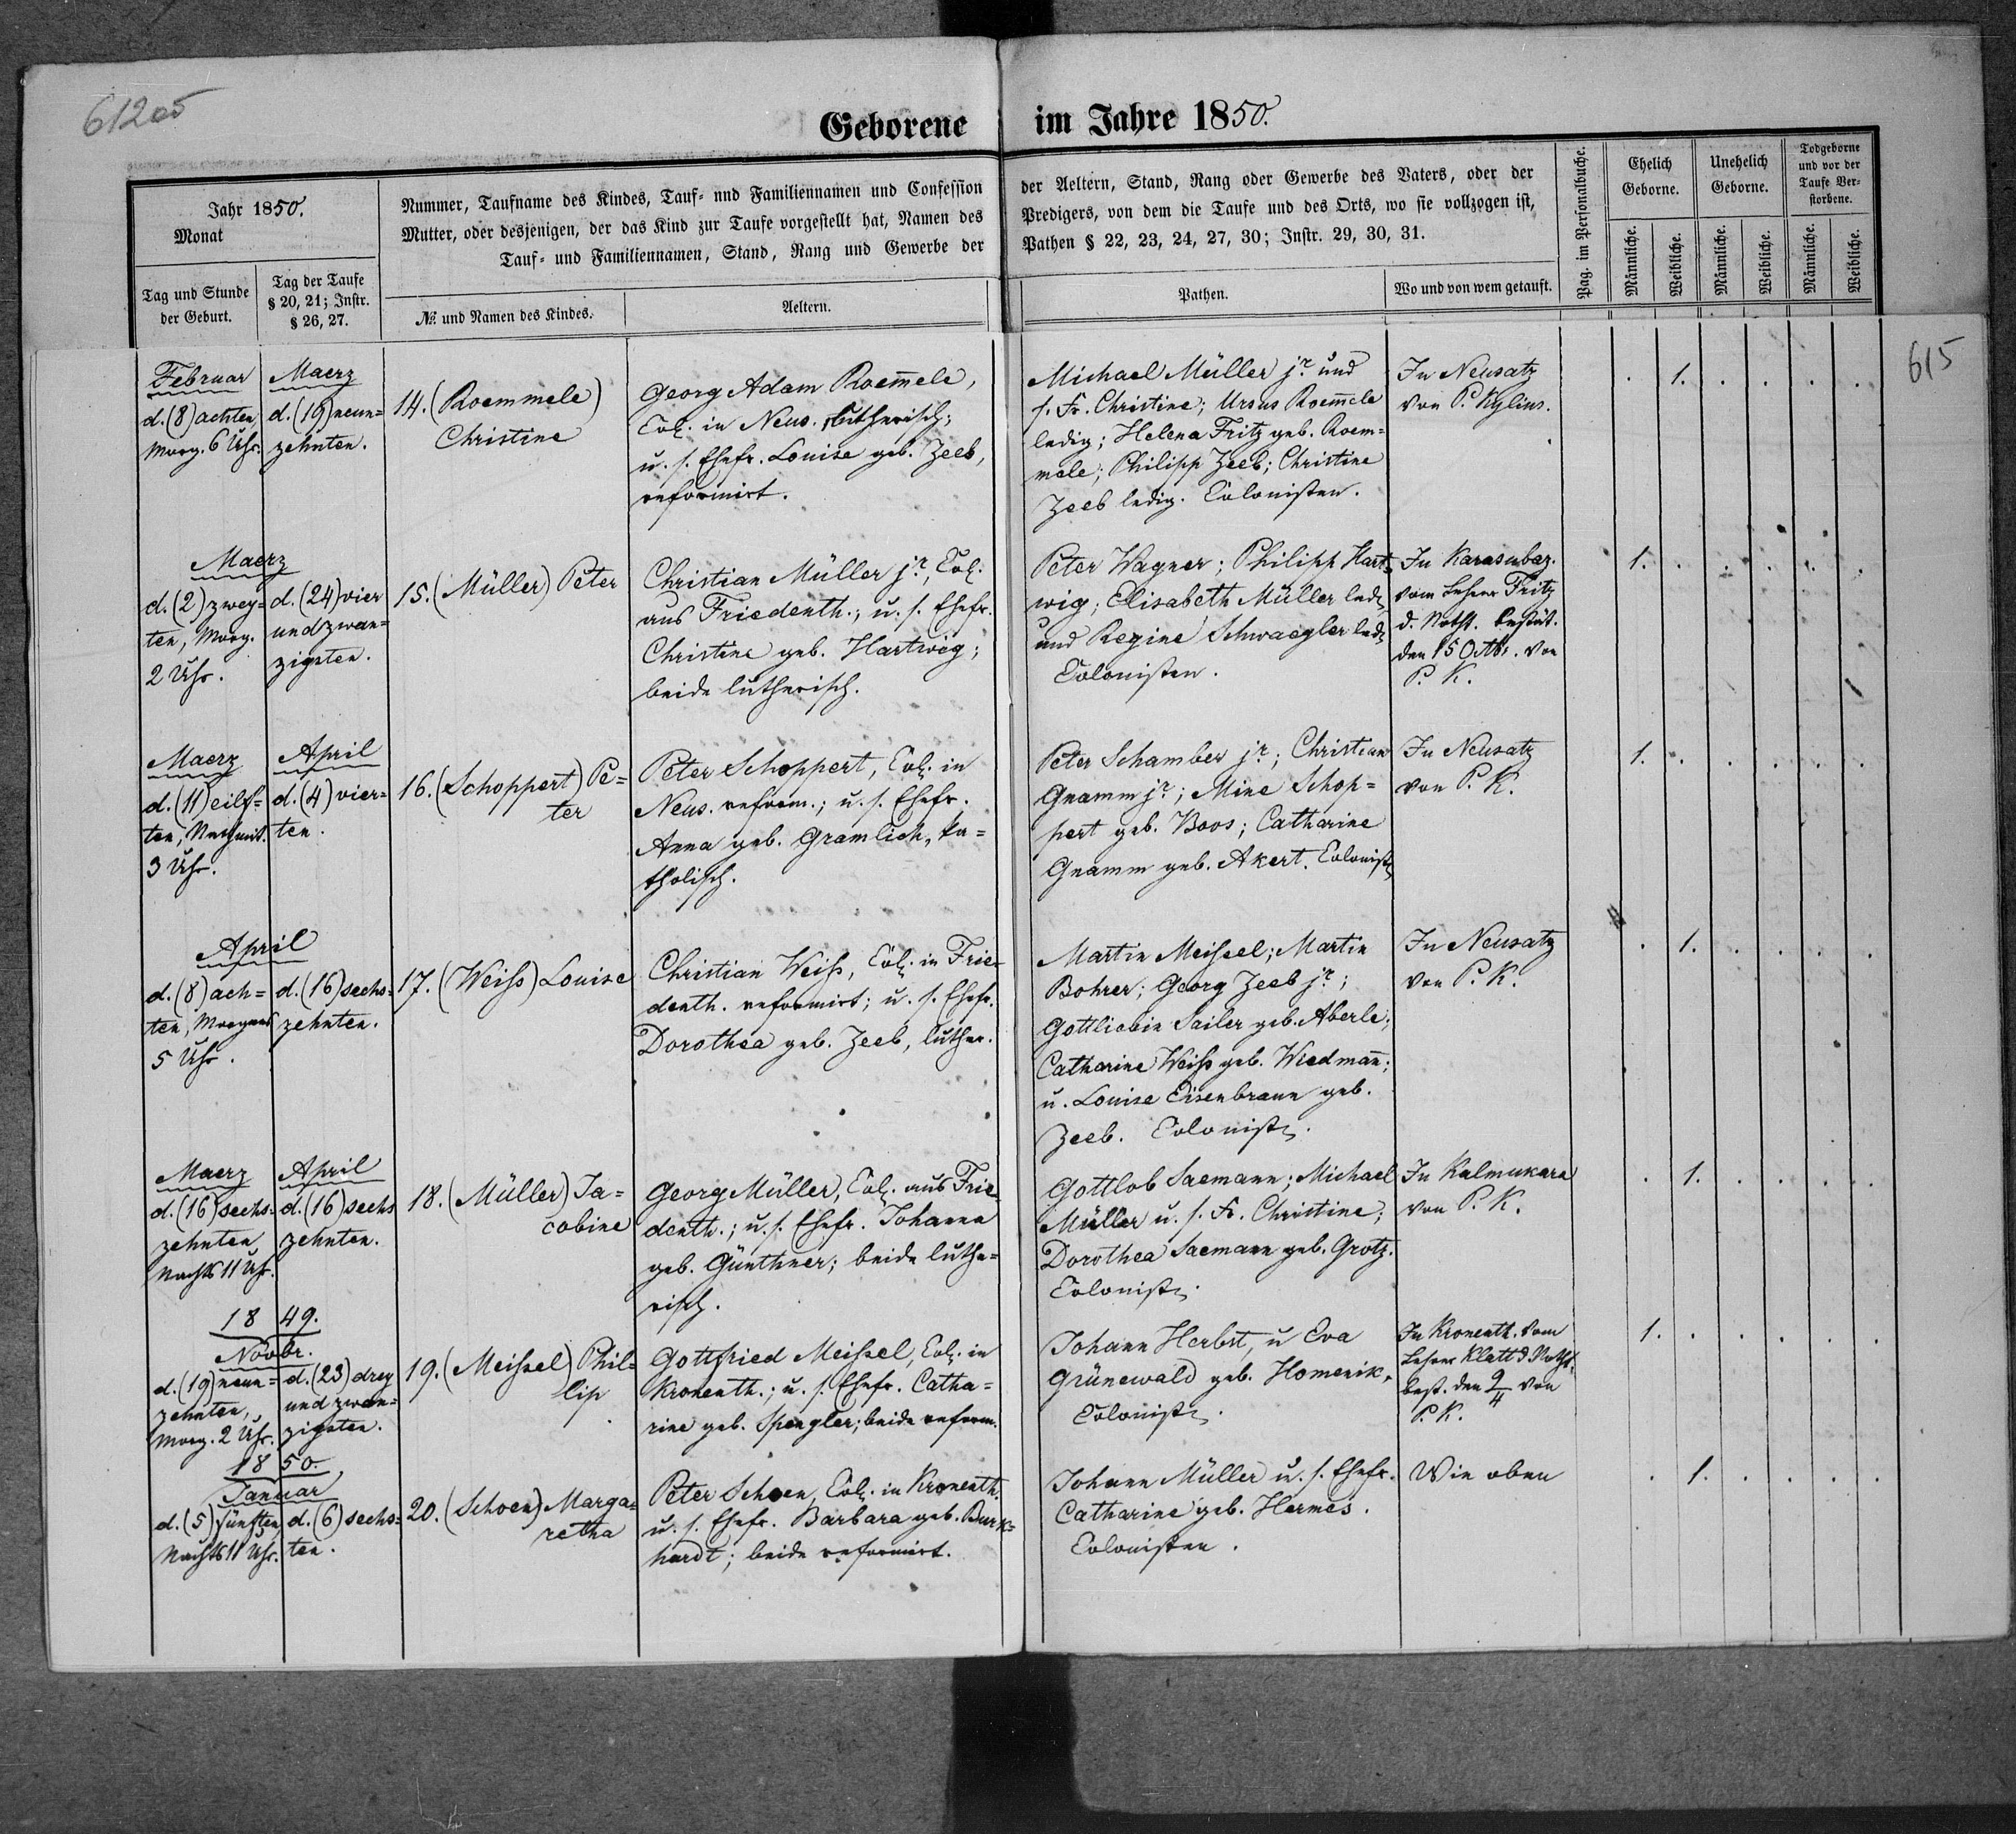 61205
Geborene im Jahre 1850.
Jahr 1850.
Monat
Tag und Stunde
der Geburt.
Tag der Taufe
§ 20, 21; Instr.
§ 26, 27.
Nummer, Taufname des Kindes, Tauf- und Familiennamen und Confession
Mutter, oder desjenigen, der das Kind zur Taufe vorgestellt hat, Namen des
Tauf- und Familiennamen, Stand, Rang und Gewerbe der
№ und Namen des Kindes.
Aeltern.
der Aeltern, Stand, Rang oder Gewerbe des Vaters, oder der
Predigers, von dem die Taufe und des Orts, wo sie vollzogen ist,
Pathen § 22, 23, 24, 27, 30; Instr. 29, 30, 31.
Pathen.
Wo und von wem getauft.
Pag. im Personalbuche.
Ehelich
Geborne.
Unehelich
Geborne.
Todgeborne
und vor der
Taufe Ver-
storbene.
Männliche.
Weibliche.
Männliche.
Weibliche.
Männliche.
Weibliche.
615
Februar
d. (8) achten
Morg. 6 Uhr.
Maerz
d. (19) neun=
zehnten.
14. (Roemmele)
Christine
Georg Adam Roem̄ele,
Col. in Neus. lutherisch;
u. s. Ehefr. Louise geb. Zeeb,
reformirt.
Michael Müller jr. und
s. Fr. Christine; Ursus Roem̄ele
ledig; Helena Fritz geb. Roem=
mele; Philipp Zeeb; Christine
Zeeb ledig. Colonisten.
In Neusatz
von P. Kylius.
1.
Maerz
d. (2) zwey=
ten, Morg.
2 Uhr.
d. (24) vier
und zwan=
zigsten.
15. (Müller) Peter
Christian Müller jr., Col.
aus Friedenth.; u. s. Ehefr.
Christine geb. Hartwig;
beide lutherisch.
Peter Wagner; Philipp Hart=
wig; Elisabeth Müller led.
und Regine Schwaegler led.
Colonisten.
In Karasubaz.
vom Lehrer Fritz
d. Notht. bestät.
den 15 Octbr. von
P. K.
1.
Maerz
d. (11) eilf=
ten, Nachmit.
3 Uhr.
April
d. (4) vier=
ten.
16. (Schoppert) Pe=
ter
Peter Schoppert, Col. in
Neus. reform.; u. s. Ehefr.
Anna geb. Gramlich, ka=
tholisch.
Peter Schamber jr.; Christian
Gnamm jr.; Mine Schop=
pert geb. Boos; Catharine
Gnamm geb. Akert. Colonist.
In Neusatz
von P. K.
1.
April
d. (8) ach=
ten, Morgens
5 Uhr.
d. (16) sechs=
zehnten.
17. (Weiss) Louise
Christian Weiss, Col. in Frie=
denth. reformirt; u. s. Ehefr.
Dorothea geb. Zeeb, luther.
Martin Meissel; Martin
Bohrer; Georg Zeeb jr.;
Gottliebin Sailer geb. Aberle;
Catharine Weiss geb. Wiedman̄;
u. Louise Eisenbraun geb.
Zeeb. Colonist.
In Neusatz
von P. K.
1.
Maerz
d. (16) sechs=
zehnten
Nachts 11 Uhr.
April
d. (16) sechs
zehnten.
18. (Müller) Ja=
cobine
Georg Müller, Col. aus Frie=
denth.; u. s. Ehefr. Johanna
geb. Günthner; beide luthe=
risch.
Gottlob Saemann; Michael
Müller u. s. Fr. Christine;
Dorothea Saemann geb. Grotz.
Colonist.
In Kalmukara
von P. K.
1.
1849.
Novbr.
d. (19) neun=
zehnten,
Morg. 2 Uhr.
d. (23) drey
und zwan=
zigsten.
19. (Meissel) Phil=
lip
Gottfried Meissel, Col. in
Kronenth.; u. s. Ehefr. Catha=
rine geb. Spengler; beide reform.
Johann Herbst, u Eva
Grünewald geb. Homerik,
Colonist.
In Kronenth. vom
Lehrer Klatt d. Notht.
best. den 9/4 von
P. K.
1.
1850.
Januar
d. (5) fünften
Nachts 11 Uhr.
d. (6) sechs=
ten.
20. (Schoen) Marga=
retha
Peter Schoen, Col. in Kronenth.
u. s. Ehefr. Barbara geb. Burk=
hardt; beide reformirt.
Johann Müller u. s. Ehefr.
Catharine geb. Hermes.
Colonisten.
Wie oben
1.